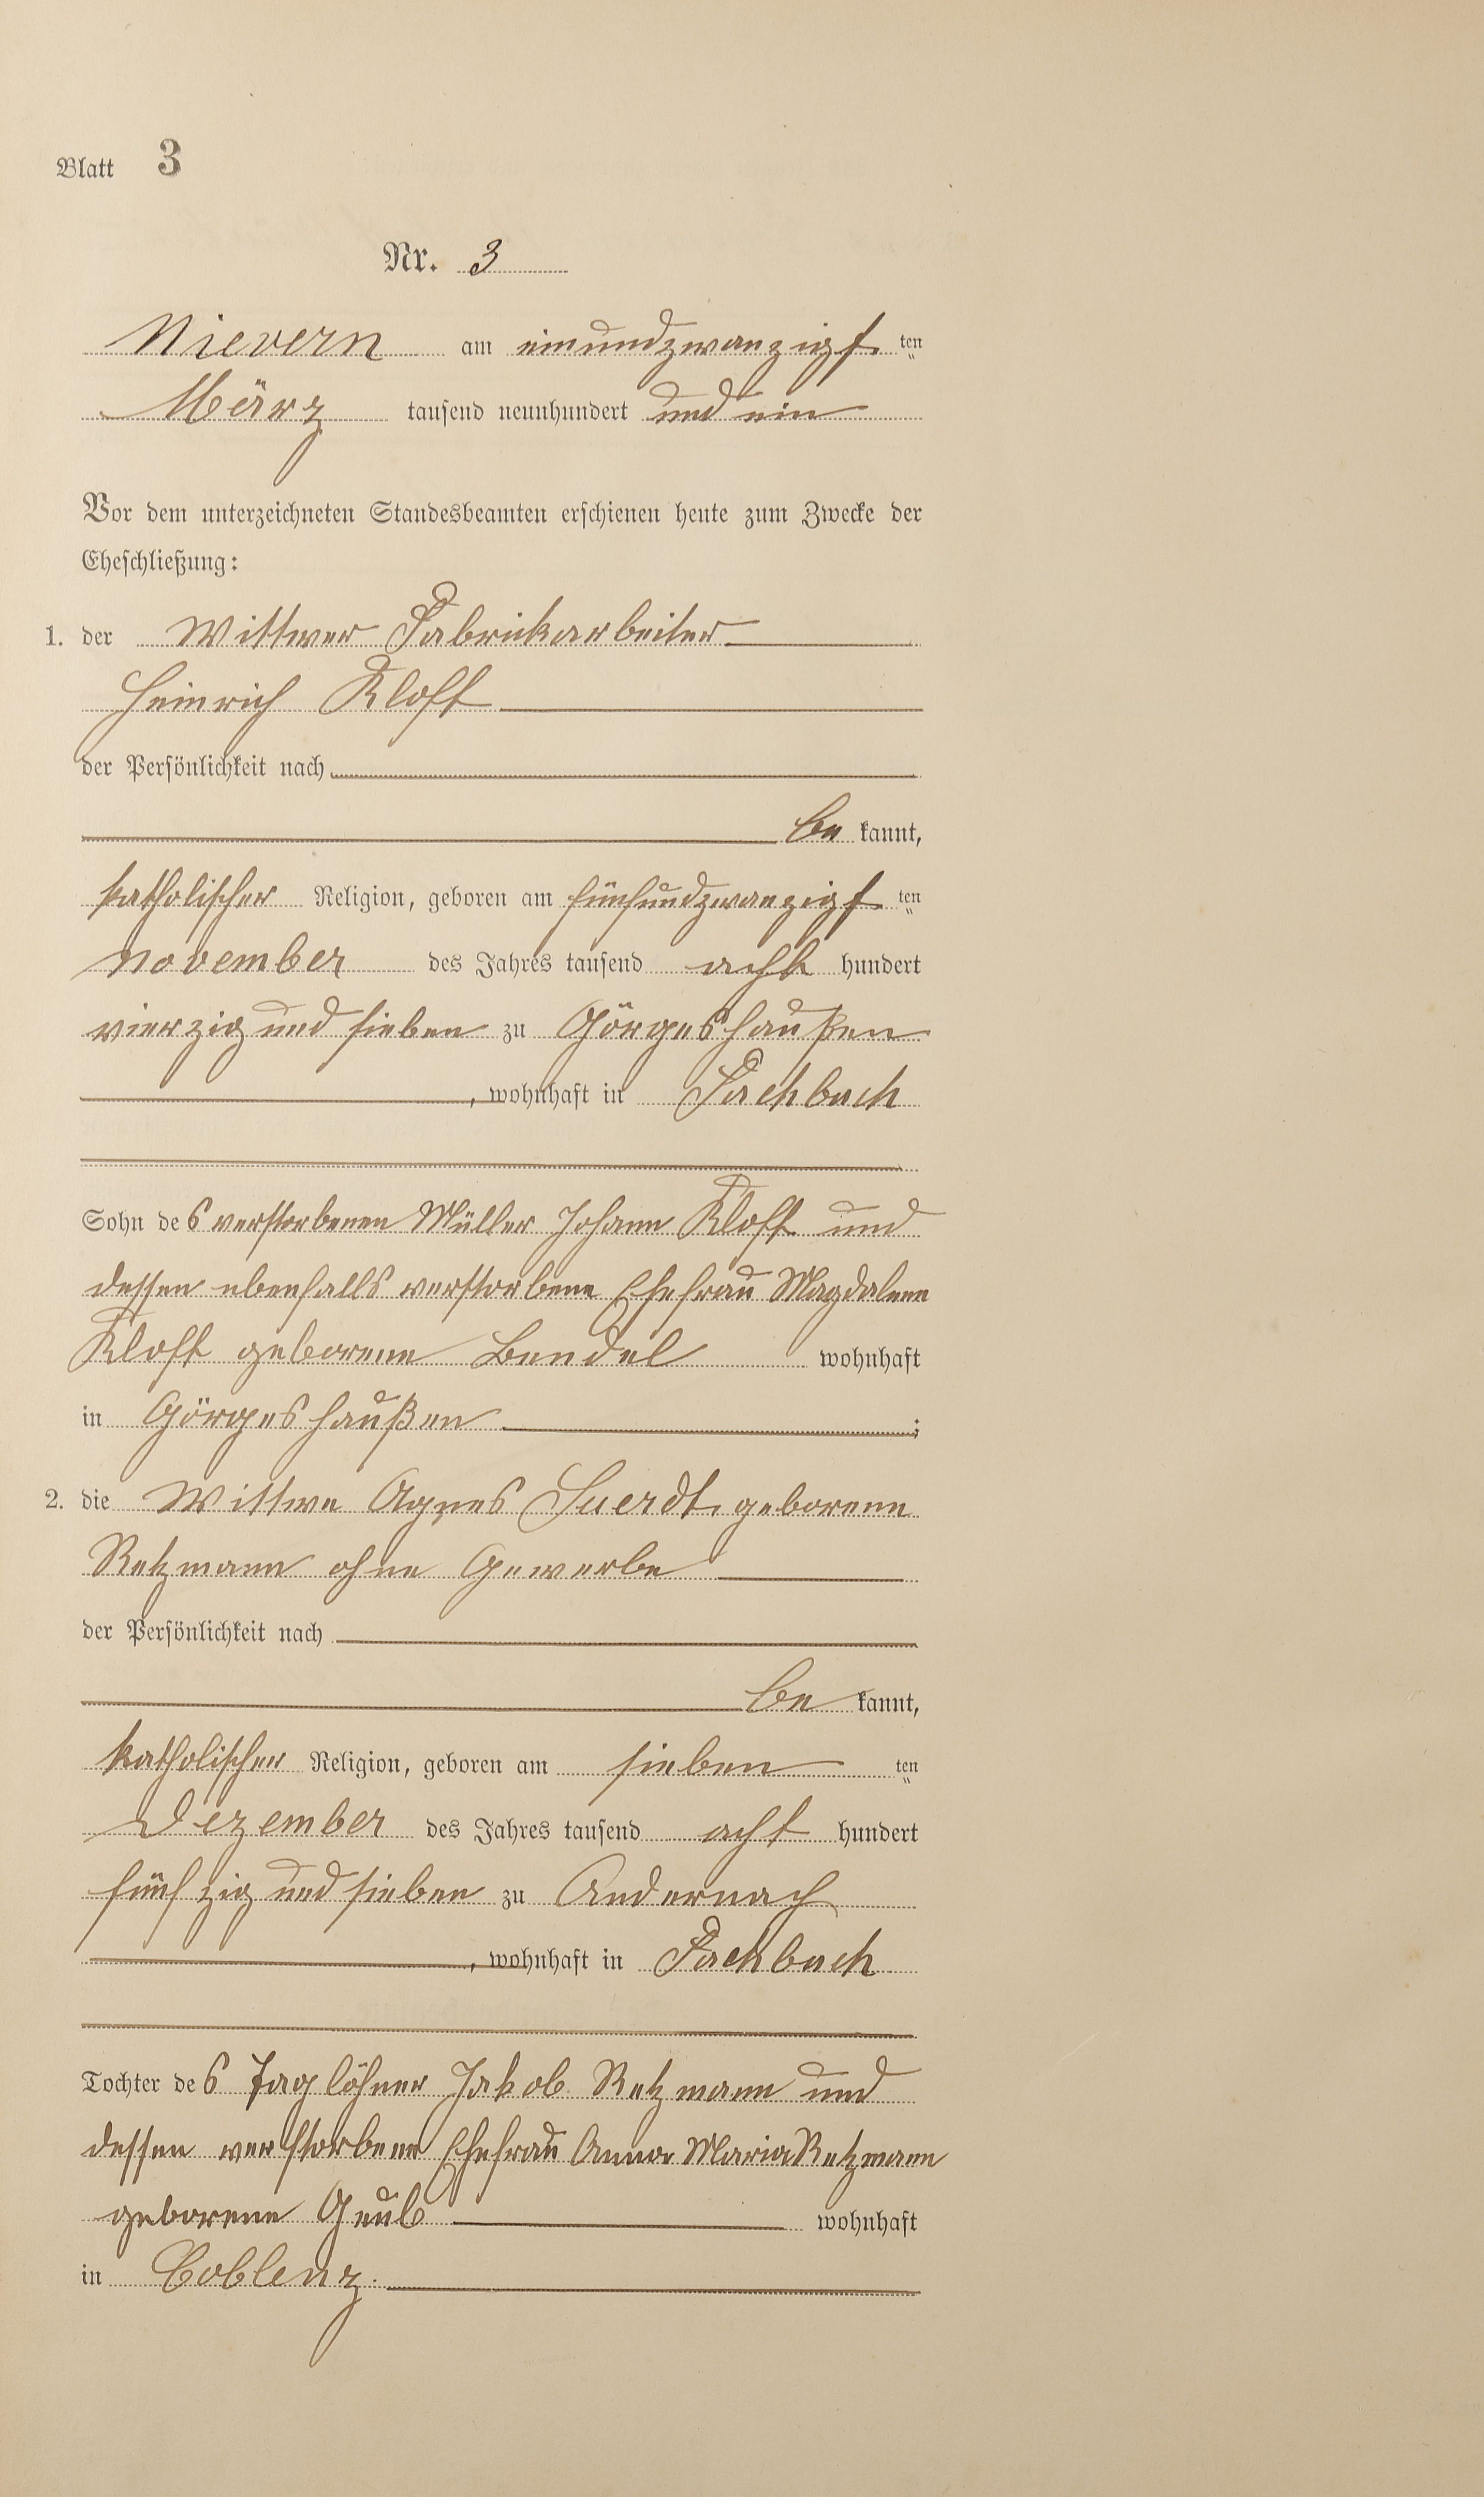 Blatt 3
Nr. 3
Nievern am einundzwanzigsten
März tausend neunhundert und ein
Vor dem unterzeichneten Standesbeamten erschienen heute zum Zwecke der
Eheschließung:
1. der Wittwer Fabrikarbeiter
Heinrich Kloft
der Persönlichkeit nach
be kannt,
katholischer Religion, geboren am fünfundzwanzigsten
November des Jahres tausend acht hundert
vierzig und sieben zu Görgeshaußen
, wohnhaft in Fachbach
Sohn des verstorbenen Müller Johann Kloft und
dessen ebenfalls verstorbene Ehefrau Magdalene
Kloft geborene Bendel wohnhaft
in Görgeshaußen ;
2. die Wittwe Agnes Suerdt, geborene
Retzmann ohne Gewerbe
der Persönlichkeit nach
be kannt,
katholischer Religion, geboren am sieben ten
Dezember des Jahres tausend acht hundert
fünfzig und sieben zu Andernach
, wohnhaft in Fachbach
Tochter des Taglöhner Jakob Retzmann und
dessen verstorbene Ehefrau Anna Maria Retzmann
geborene Geul wohnhaft
in Coblenz.